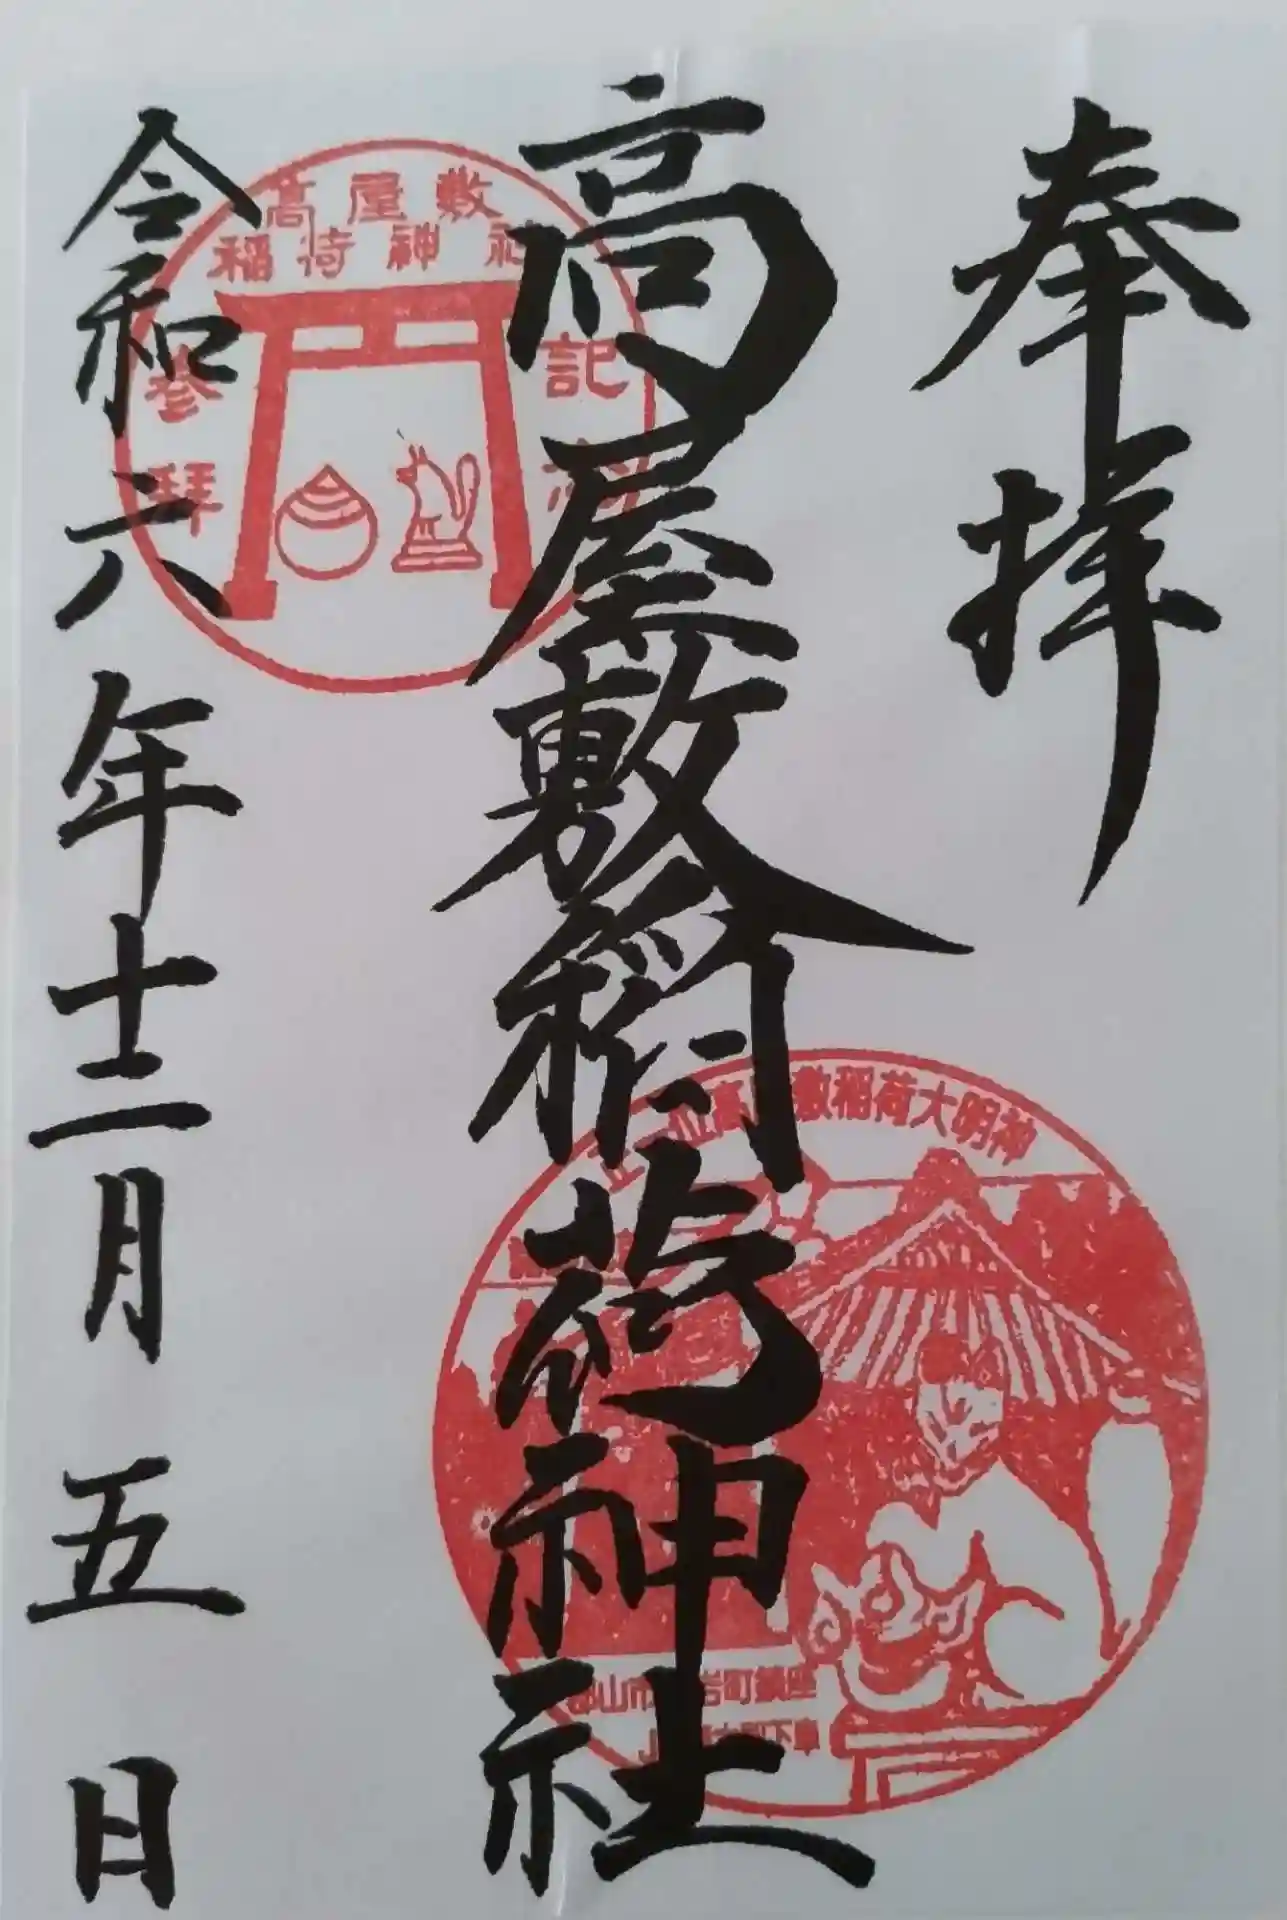 奉拝
高屋敷稲荷神社
令和六年十二月五日
高屋敷
稲荷神社
参拝
記念
正一位高屋敷稲荷大明神
山市 町鎮座
下車